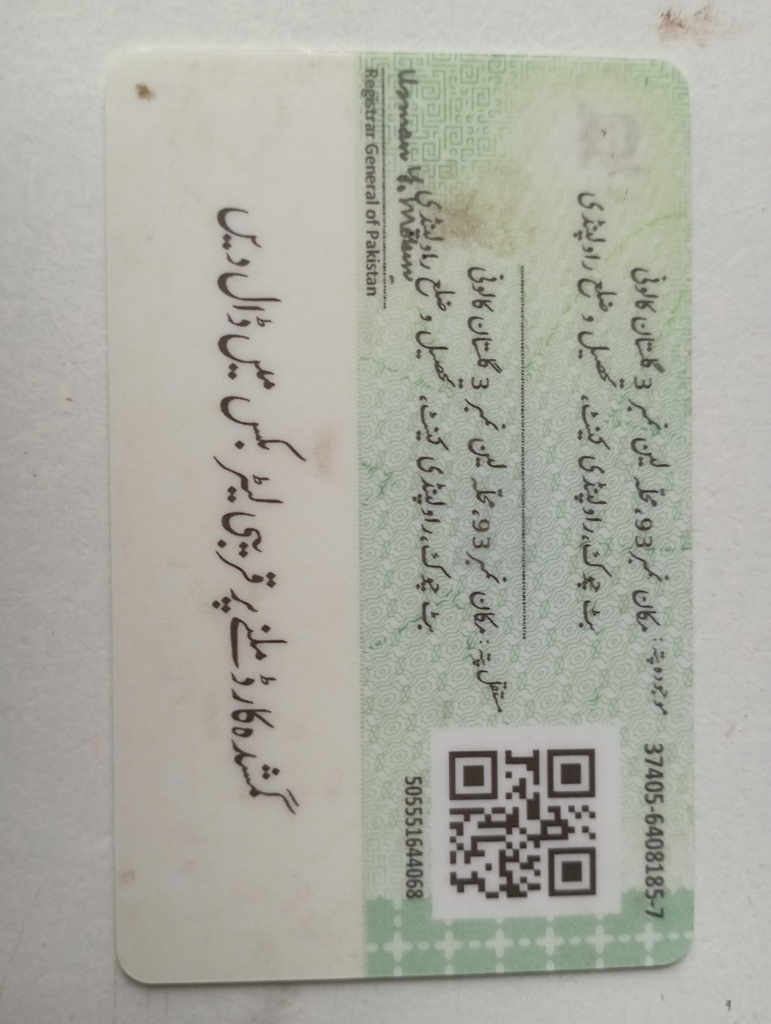 37405-6408185-7
موجودہ پتہ: مکان نمبر 93، محلہ لین نمبر 3 گلستان کالونی
بٹ چوک، راولپنڈی کینٹ، تحصیل و ضلع راولپنڈی
مستقل پتہ: مکان نمبر 93، محلہ لین نمبر 3 گلستان کالونی
بٹ چوک، راولپنڈی کینٹ، تحصیل و ضلع راولپنڈی
505551644068
Usman Y. Mobin
Registrar General of Pakistan
گمشدہ کارڈ ملنے پر قریبی لیٹر بکس میں ڈال دیں